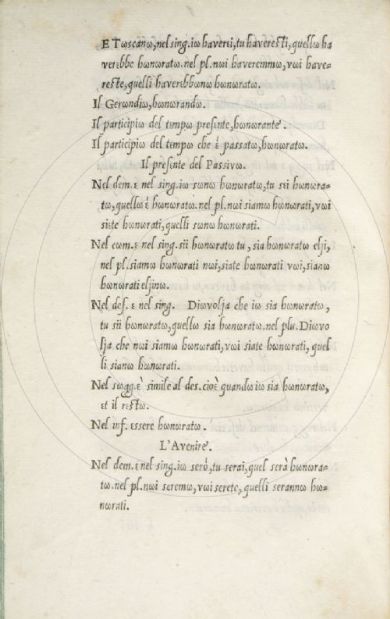 ET ωscanω, nel sing. iω haverei, tu haveresti, quellω ha
verεbbe hωnωratω. nel pl. nωi haveremmω, vωi have-
reste, quelli haverεbbωnω hωnωratω.
Il Gerωndiω, hωnωrandω.
Il participiω del tempω presεnte, hωnωrante.
Il participiω del tempω che ὲ passatω, hωnωratω.
Il presεnte del Passivω.
Nel dem. ε nel sing. iω sωnω hωnωratω, tu sεi hωnωra-
tω, quellω ὲ hωnωratω. nel pl. nωi siamω hωnωrati, vωi
siεte hωnωrati, quelli sωnω hωnωrati.
Nel com. ε nel sing. sii hωnωratω tu, sia hωnωratω elji,
nel pl. siamω hωnωrati nωi, siate hωnωrati vωi, sianω
hωnωrati eljinω.
Nel des. ε nel sing. Diωvolja che iω sia hωnωratω,
tu sii hωnωratω, quellω sia hωnωratω. nel plu. Diωvo
lja che nωi siamω hωnωrati, vωi siate hωnωrati, quel
li sianω hωnωrati.
Nel sωgg. ὲ simile al des. cioὲ quandω iω sia hωnωratω,
et il restω.
Nel inf. εssere hωnωratω.
L'Avenire.
Nel dem. ε nel sing. iω serò, tu serai, quel serà hωnωra-
tω. nel pl. nωi seremω, vωi serete, quelli serannω hω-
nωrati.